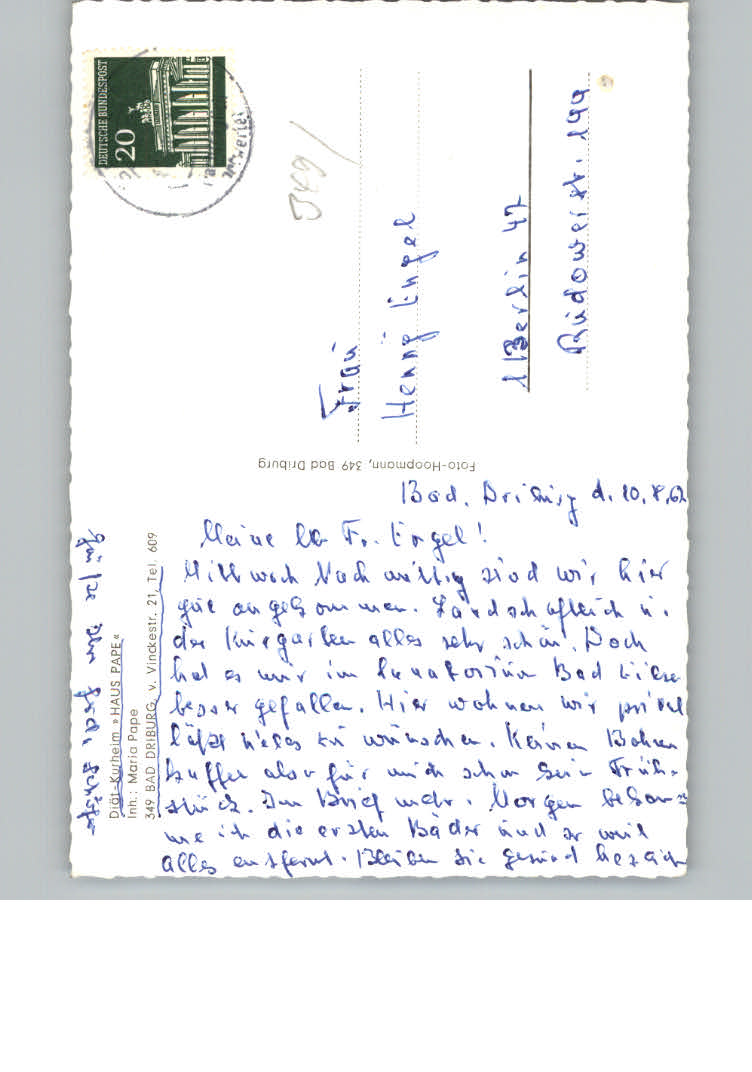 DEUTSCHE BUNDESPOST
20
349/
Frau
Henny Engel
1 Berlin 47
Rudowerstr. 144
Foto-Hoopmann, 349 Bad Driburg
Diät-Kurheim »HAUS PAPE«
Inh.: Maria Pape
349 BAD DRIBURG, v. Vinckestr. 21, Tel. 609
Bad. Driburg d. 10.8.62
Meine lb Fr. Engel!
Mittwoch Nachmittag sind wir hier
gut angekommen. Landschaftlich u.
der Kurgarten alles sehr schön. Doch
hat es mir im Sanatorium Bad
besser gefallen. Hier wohnen wir privat
läßt vieles zu wünschen. Keinen Bohnen
kaffee aber für mich schon Früh-
stück. Im Brief mehr. Morgen bekom=
me ich die ersten Bäder und er weit
alles entfernt. Bleiben Sie gesund herzlich
Grüße Ihre